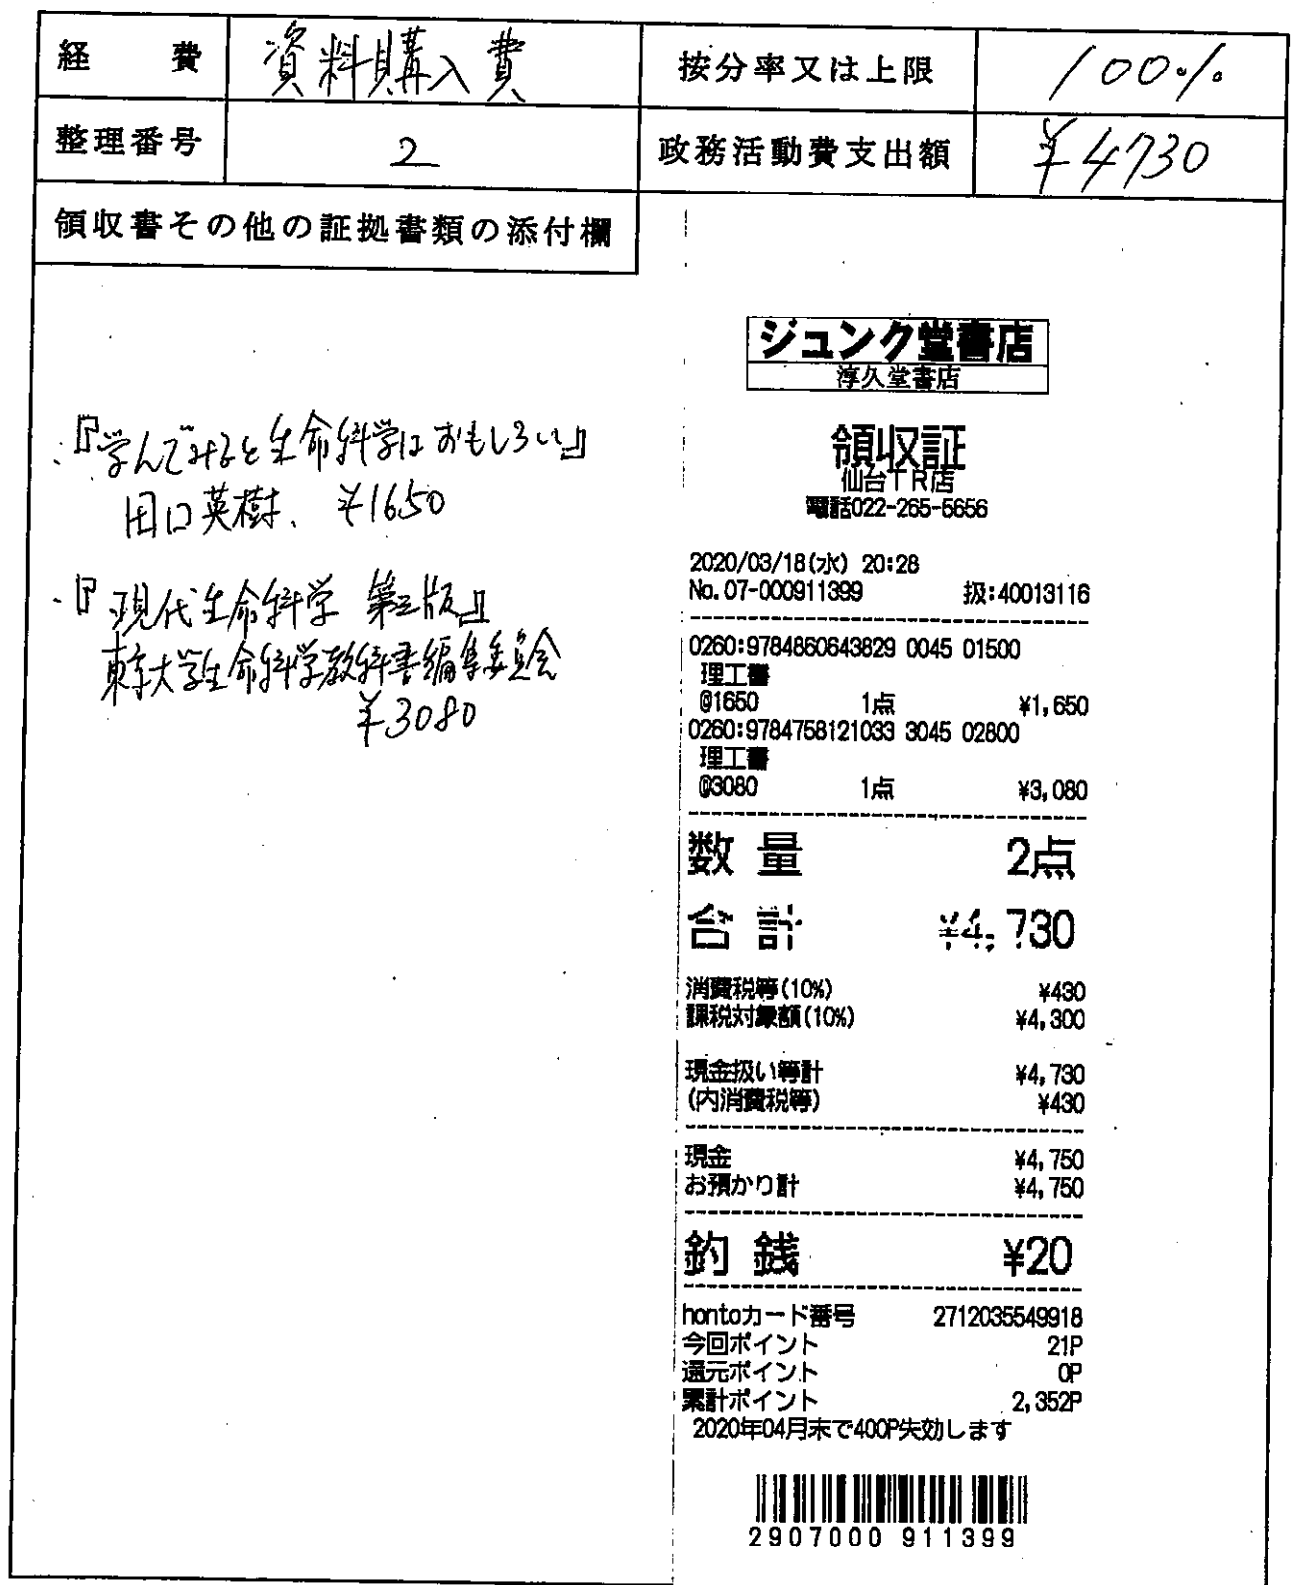 経 費 資料購入費 按分率又は上限 100%
整理番号 2 政務活動費支出額 ¥4730
領収書その他の証拠書類の添付欄
・『学んでみると生命科学はおもしろい』
田口英樹、¥1650
・『現代生命科学 第三版』
東京大学生命科学教科書編集委員会
¥3080
ジュンク堂書店
淳久堂書店
領収証
仙台TR店
電話022-265-5656
2020/03/18(水) 20:28
No.07-000911399 扱:40013116
0260:9784860643829 0045 01500
理工書
@1650 1点 ¥1,650
0260:9784758121033 3045 02800
理工書
@3080 1点 ¥3,080
数 量 2点
合 計 ¥4,730
消費税等(10%) ¥430
課税対象額(10%) ¥4,300
現金扱い等計 ¥4,730
(内消費税等) ¥430
現金 ¥4,750
お預かり計 ¥4,750
釣 銭 ¥20
hontoカード番号 2712035549918
今回ポイント 21P
還元ポイント 0P
累計ポイント 2,352P
2020年04月末で400P失効します
2907000 911399